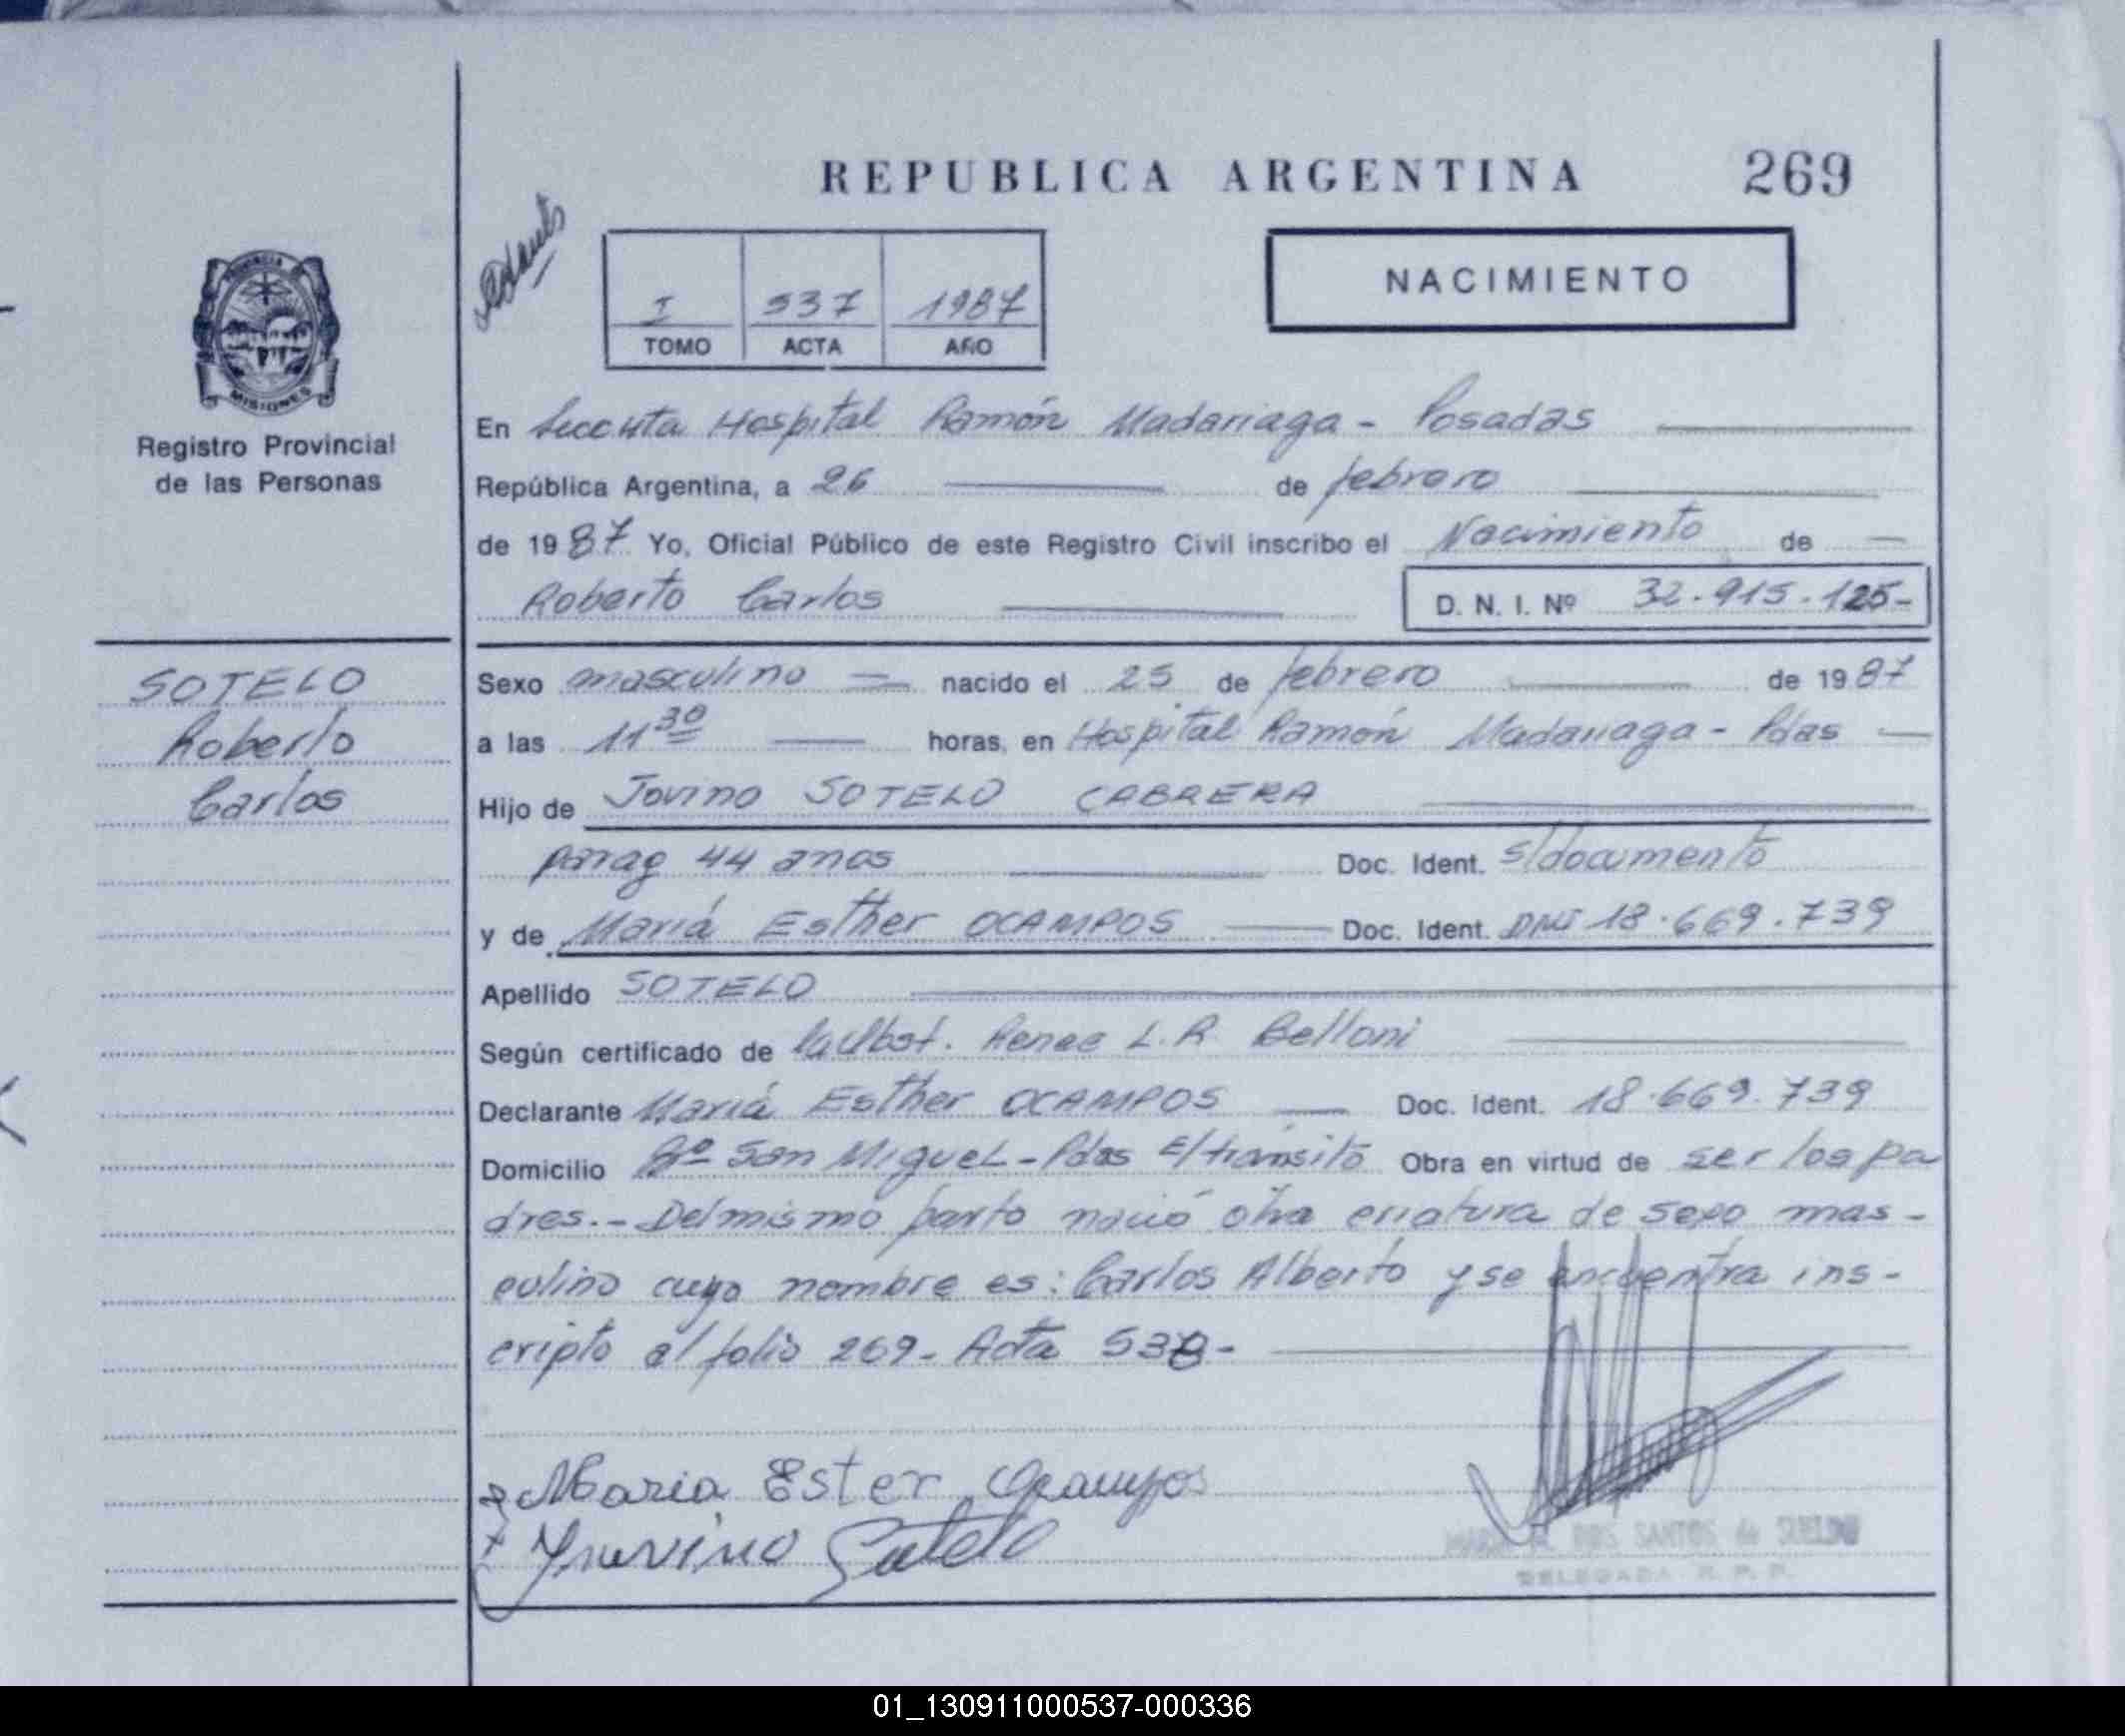 REPUBLICA ARGENTINA 269
NACIMIENTO
I 537 1987
TOMO ACTA AÑO
PROVINCIA
MISIONES
Registro Provincial
de las Personas
En Seccita Hospital Ramón Madariaga - Posadas
República Argentina, a 26 de febrero
de 1987 Yo, Oficial Público de este Registro Civil inscribo el Nacimiento de
Roberto Carlos D. N. I. Nº 32.915.125-
SOTELO
Roberto
Carlos
Sexo masculino nacido el 25 de febrero de 1987
a las 11 30 horas, en Hospital Ramón Madariaga - Pdas
Hijo de Jovino SOTELO CABRERA
parag 44 anos Doc. Ident. s/documento
y de Mariá Esther OCAMPOS Doc. Ident. DNI 18.669.739
Apellido SOTELO
Según certificado de Renee L.R. Belloni
Declarante Mariá Esther OCAMPOS Doc. Ident. 18.669.739
Domicilio Bº San Miguel - Pdas E/tránsito Obra en virtud de ser los pa
dres.- Del mismo parto nació otra criatura de sexo mas-
culino cuyo nombre es: Carlos Alberto y se encuentra ins-
cripto al folio 269- Acta 538-
Maria Ester Ocampos
Sotelo
DOS SANTOS de
DELEGADA R. P. P.
01_130911000537-000336